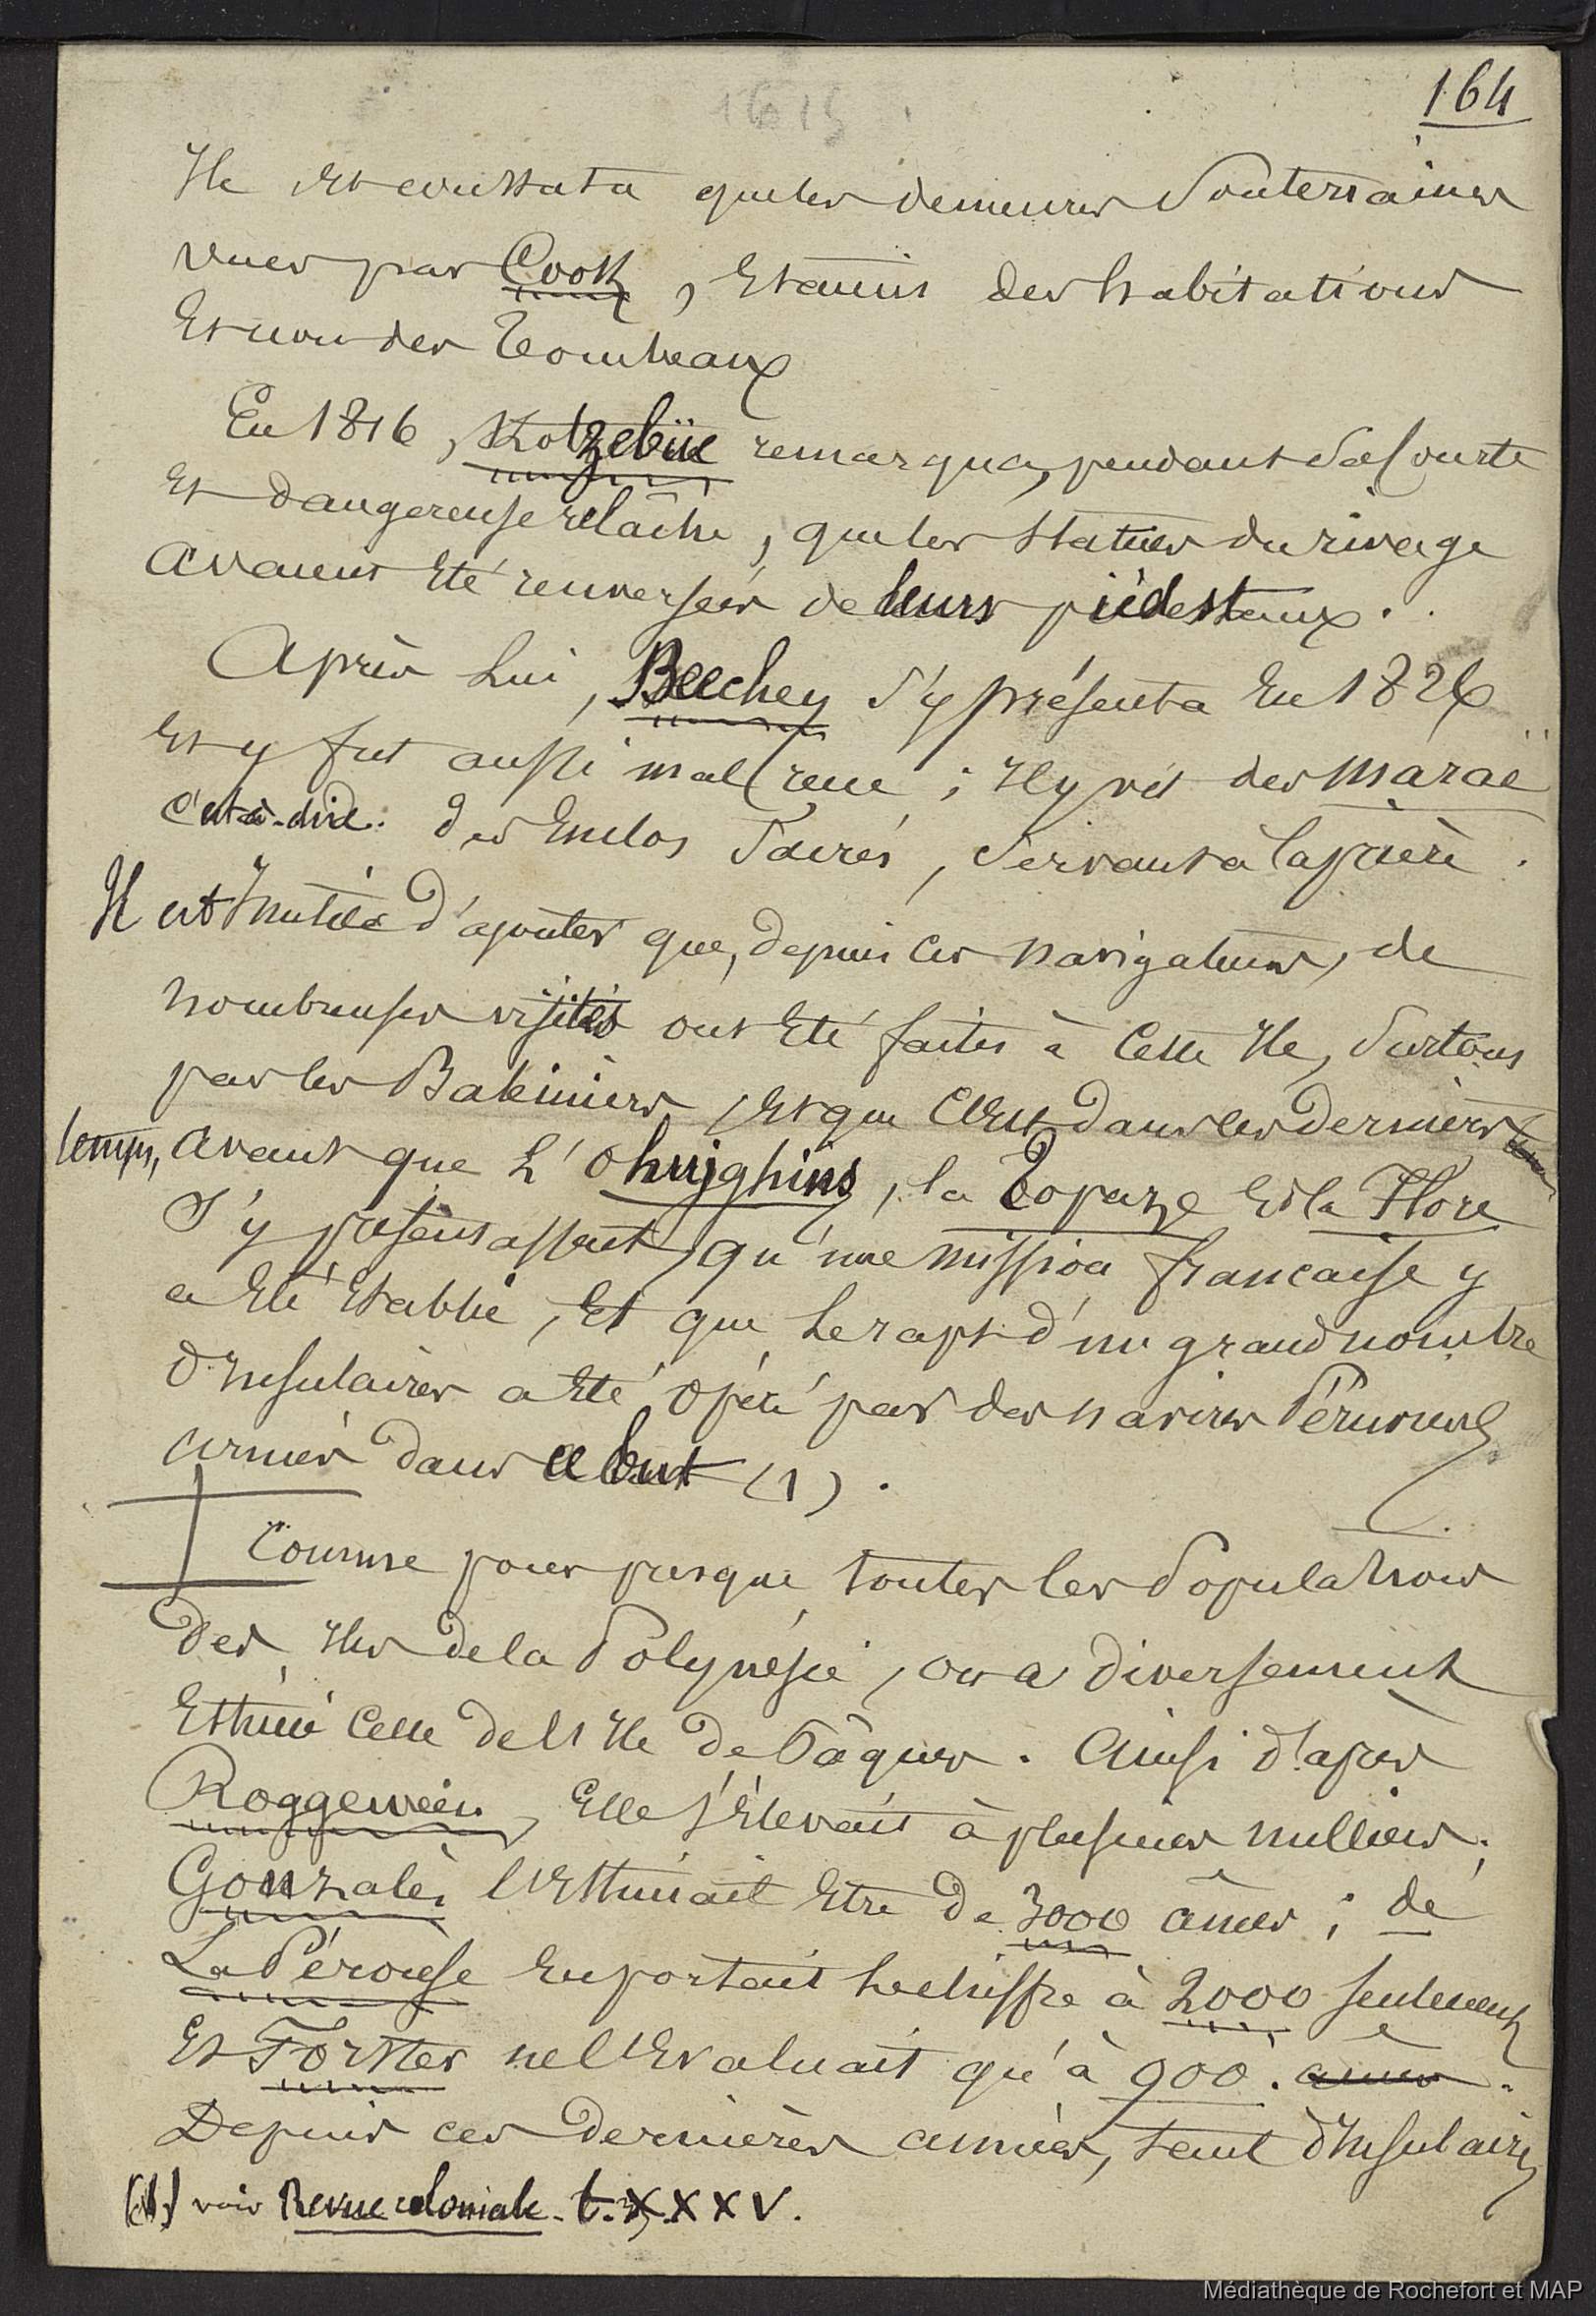 164
1615
Ile et constata que les demeures souterraines
vues par Cook, étaient des habitations
et non des tombeaux
En 1816, Kotzebüe remarqua, pendant sa courte
et dangereuse relâche, que les statues du rivage
avaient été renversées de leurs piédestaux.
Après lui, Beechey s'y présenta en 1826
et y fut aussi mal reçu ; il y vit des maraë
c'est-à-dire. des enclos sacrés, servant à la prière.
Il est inutile d'ajouter que, depuis ces navigateurs, de
nombreuses visites ont été faites à cette Ile, surtout
par les Baleiniers, et que c'est dans les derniers
temps, avant que l'Ohuighins, la Topaze et la Flore
s'y présentassent, qu'une mission française y
a été établie, et que le rapt d'un grand nombre
d'insulaires a été opéré par des navires Péruviens
armés dans ce but (1).
Comme pour presque toutes les populations
des Iles de la Polynésie, on a diversement
estimé celle de l'Ile de Pâques. Ainsi d'après
Roggeween, elle s'élevait à plusieurs milliers ;
Gonzalès l'estimait être de 3000 âmes ; de
La Pérouse en portait le chiffre à 2000 seulement
et Forster ne l'évaluait qu'à 900. âmes.
Depuis ces dernières années, tant d'insulaires
(1) voir Revue coloniale. t. XXXV.
Médiathèque de Rochefort et MAP